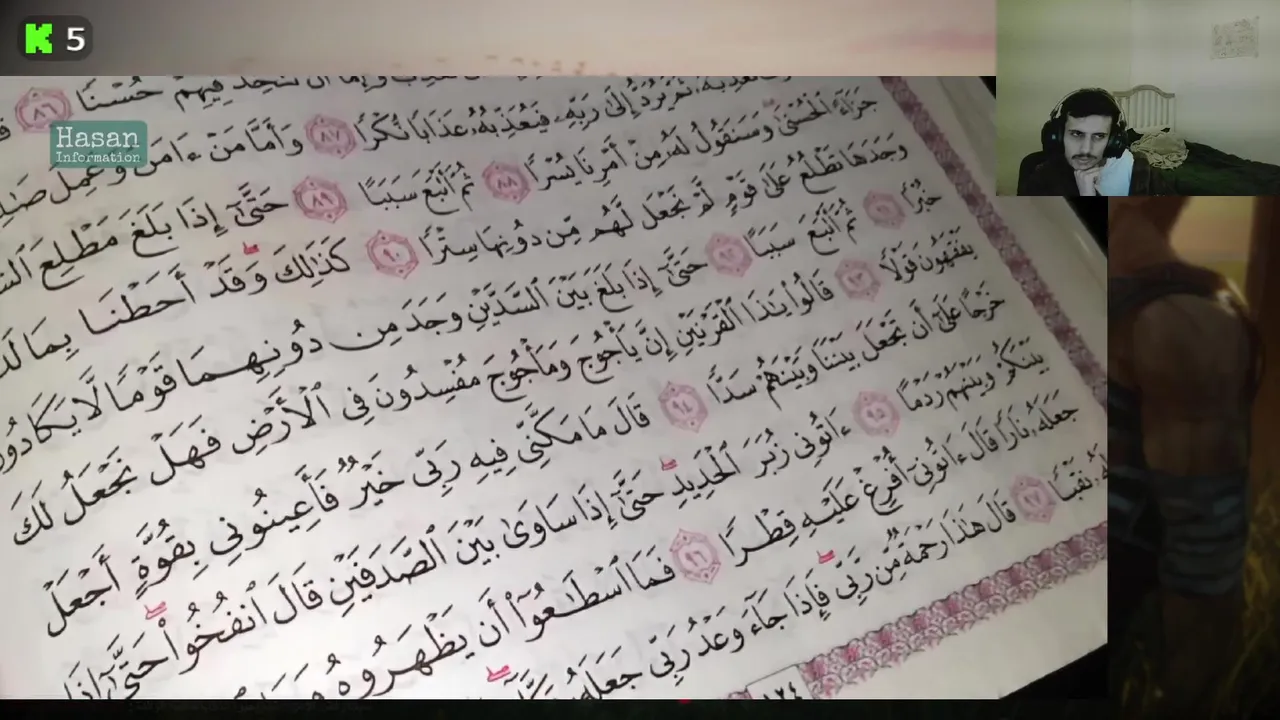 K 5
Hasan
Information
وَإِمَّآ أَن تَتَّخِذَ فِيهِمْ حُسْنًا ٨٦
نُعَذِّبُهُۥ ثُمَّ يُرَدُّ إِلَىٰ رَبِّهِۦ فَيُعَذِّبُهُۥ عَذَابًا نُّكْرًا ٨٧ وَأَمَّا مَنْ ءَامَنَ وَعَمِلَ
جَزَآءً ٱلْحُسْنَىٰ وَسَنَقُولُ لَهُۥ مِنْ أَمْرِنَا يُسْرًا ٨٨ ثُمَّ أَتْبَعَ سَبَبًا ٨٩ حَتَّىٰٓ إِذَا بَلَغَ مَطْلِعَ
وَجَدَهَا تَطْلُعُ عَلَىٰ قَوْمٍ لَّمْ نَجْعَل لَّهُم مِّن دُونِهَا سِتْرًا ٩٠ كَذَٰلِكَ وَقَدْ أَحَطْنَا بِمَا
خُبْرًا ٩١ ثُمَّ أَتْبَعَ سَبَبًا ٩٢ حَتَّىٰٓ إِذَا بَلَغَ بَيْنَ ٱلسَّدَّيْنِ وَجَدَ مِن دُونِهِمَا قَوْمًا لَّا يَكَادُونَ
يَفْقَهُونَ قَوْلًا ٩٣ قَالُوا۟ يَٰذَا ٱلْقَرْنَيْنِ إِنَّ يَأْجُوجَ وَمَأْجُوجَ مُفْسِدُونَ فِى ٱلْأَرْضِ فَهَلْ نَجْعَلُ لَكَ
خَرْجًا عَلَىٰٓ أَن تَجْعَلَ بَيْنَنَا وَبَيْنَهُمْ سَدًّا ٩٤ قَالَ مَا مَكَّنِّى فِيهِ رَبِّى خَيْرٌ فَأَعِينُونِى بِقُوَّةٍ أَجْعَلْ
بَيْنَكُمْ وَبَيْنَهُمْ رَدْمًا ٩٥ ءَاتُونِى زُبَرَ ٱلْحَدِيدِ ۖ حَتَّىٰٓ إِذَا سَاوَىٰ بَيْنَ ٱلصَّدَفَيْنِ قَالَ ٱنفُخُوا۟ ۖ حَتَّىٰٓ إِذَا
جَعَلَهُۥ نَارًا قَالَ ءَاتُونِىٓ أُفْرِغْ عَلَيْهِ قِطْرًا ٩٦ فَمَا ٱسْطَٰعُوٓا۟ أَن يَظْهَرُوهُ
لَهُۥ نَقْبًا ٩٧ قَالَ هَٰذَا رَحْمَةٌ مِّن رَّبِّى ۖ فَإِذَا جَآءَ وَعْدُ رَبِّى جَعَلَهُۥ